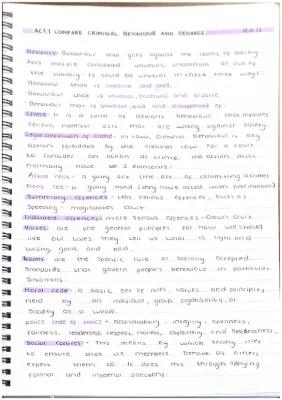 AC1.1 COMPARE CRIMINAL BEHAVIOUR AND DEVIANCE
Deviance: Behaviour that goes against the norms of society.
Acts that are considered unusual, uncommon or out of
the ordinary. It could be unusual in these three ways:
Behaviour that is unusual and good.
Behaviour that is unusual, eccentric and bizarre.
Behaviour that is unusual, bad and disapproved of.
Crime - It is a form of deviant behaviour that involves
serious, harmful acts that are wrong against society.
Legal definition of crime - In law, criminal behaviour is any
action forbidden by the criminal law. For a court
to consider an action as crime, the action must
normally have to 2 elements:
Actus reus - a guilty act (the act of committing a crime)
Mens rea - a guilty mind (they have acted with bad intention)
Summary offences - less serious offences, such as
speeding - magistrates court
Indictable offences - more serious offences - crown court
Values - are the general principles for how we should
live our lives. They tell us what is right and
wrong, good and bad.
Norms - are the specific rules or socially accepted
standards that govern people's behaviour in particular
situations.
Moral code - a basic set of rules, values and principles,
held by an individual, group, organisation, or
society as a whole.
police code of ethics - accountability, integrity, openness,
fairness, leadership, respect, honesty, objectivity and selflessness.
Social control - this means by which society tries
to ensure that its members behave as others
expect them to. It does this through applying
formal and informal sanctions.